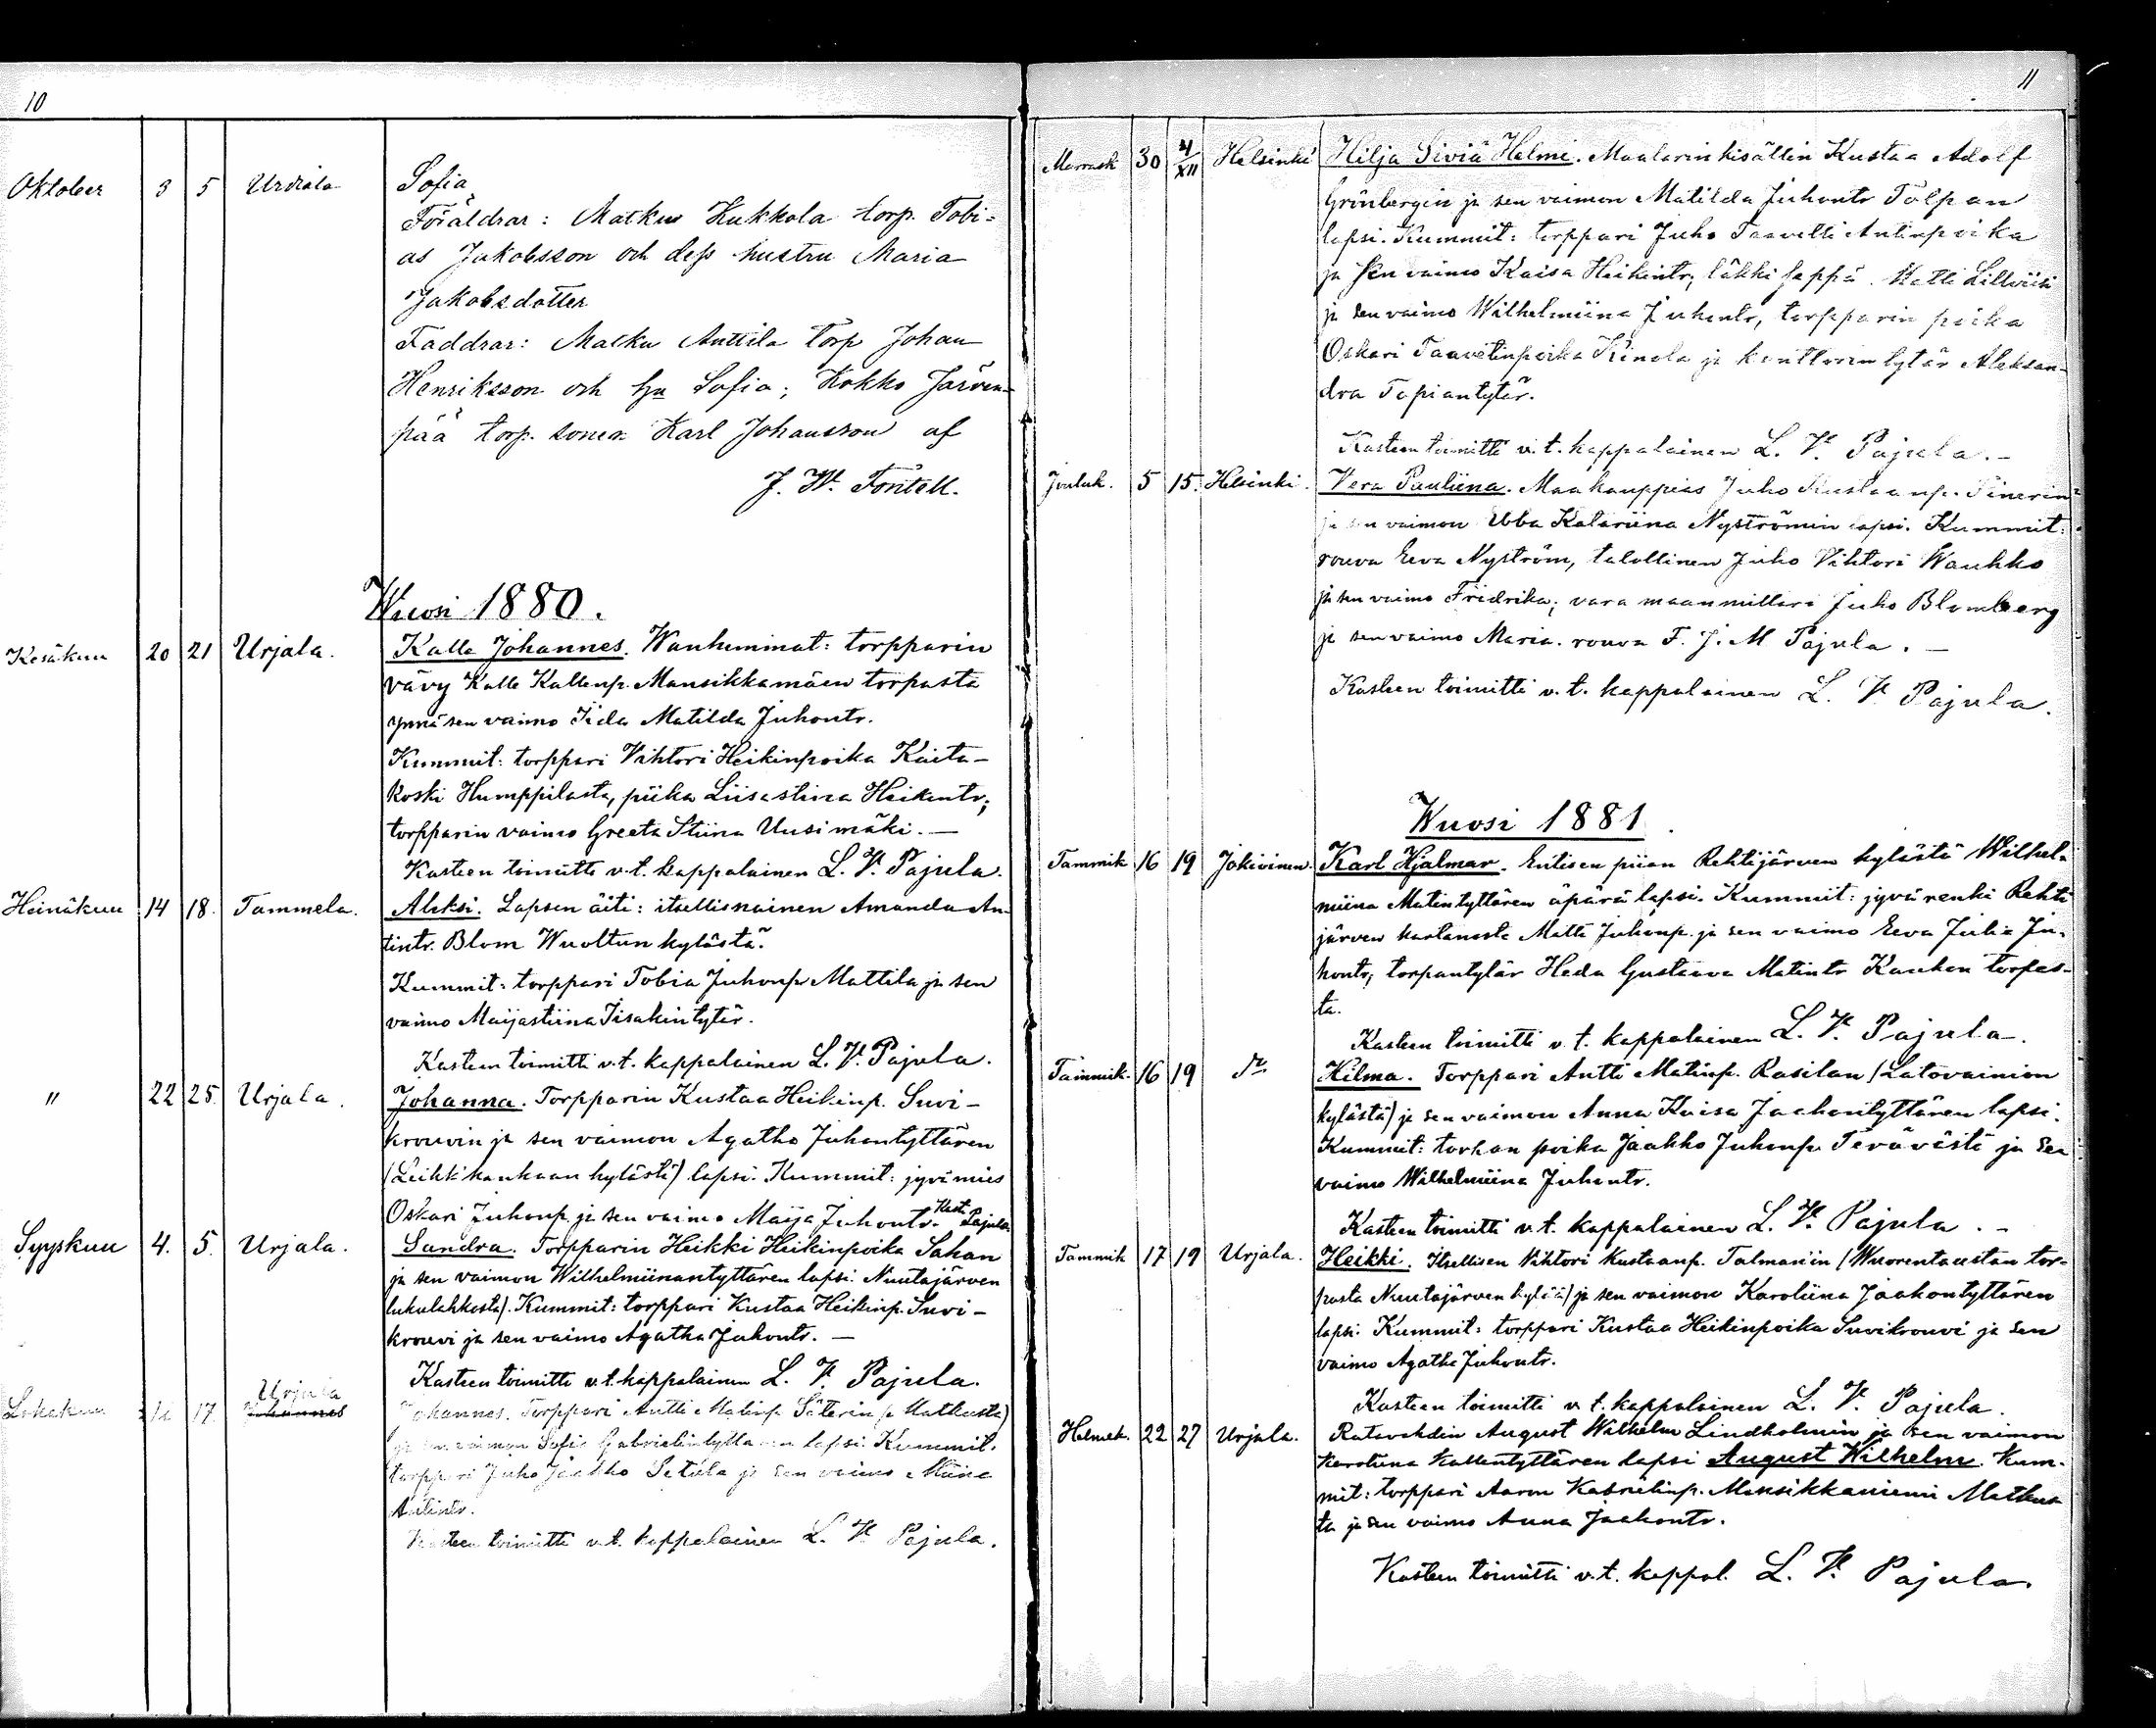 10
Oktober 3 5 Urdiala Sofia
Föräldrar: Matku Kukkola torp. Tobi=
as Jakobsson och dess hustru Maria
Jakobsdotter
Faddrar: Matku Anttila torp Johan
Henriksson och hu Sofia; Kokko Järven-
pää torp. sonen Karl Johansson af
J. W. Fontell.
Wuosi 1880.
Kesäkuu 20 21 Urjala. Kalle Johannes. Wanhemmat: torpparin
vävy Kalle Kallenp. Mansikkamäen torpasta
ynnä sen vaimo Iida Matilda Juhontr.
Kummit: torppari Vihtori Heikinpoika Kaita-
koski Humppilasta, piika Liisastina Heikintr;
torpparin vaimo Greeta Stiina Uusimäki. —
Kasteen toimitti v.t. kappalainen L. V. Pajula.
Heinäkuu 14 18. Tammela. Aleksi. Lapsen äiti: itsellisnainen Amanda An-
tintr. Blom Wuoltun kylästä.
Kummit: torppari Tobia Juhonp Mattila ja sen
vaimo Maijastiina Iisakintytär.
Kasteen toimitti v.t. kappalainen L. V. Pajula.
" 22 25. Urjala. Johanna. Torpparin Kustaa Heikinp. Suvi-
krouvin ja sen vaimon Agatha Juhontyttären
kylästä) lapsi. Kummit: jyvämies
Oskari Juhonp. ja sen vaimo Maija Juhontr. Kast. Pajula.
Syyskuu 4. 5. Urjala. Sandra. Torpparin Heikki Heikinpoika Sahan
ja sen vaimon Wilhelmiinantyttären lapsi. Nuutajärven
lukulahkosta). Kummit: torppari Kustaa Heikinp. Suvi-
krouvi ja sen vaimo Agatha Juhontr. —
Kasteen toimitti v.t. kappalainen L. V. Pajula.
Urjala
Lokakuu 17 Johannes Johannes. Torppari Antti Matinp. Säterin Matkusta)
ja sen vaimon Sofia Gabrielintyttären lapsi. Kummit.
torppari Juho Jaakko Setälä ja sen vaimo Miina
Antintr.
Kasteen toimitti v.t. kappalainen L. V. Pajula.
11
Marrask 30 4/XII Helsinki Hilja Siviä Helmi. Maalarin kisällin Kustaa Adolf
Grönbergin ja sen vaimon Matilda Juhontr Tölpan
lapsi. Kummit: torppari Juho Taavetti Antinpoika
ja sen vaimo Kaisa Heikintr; läkkiseppä Matti
ja sen vaimo Wilhelmiina Juhontr, torpparin poika
Oskari Taavetinpoika Kinola ja kanttorin tytär Aleksan-
dra Topiantytär.
Kasteen toimitti v.t. kappalainen L. V. Pajula. -
Jouluk. 5 15. Helsinki. Vera Pauliina. Maakauppias Juho Kustaanp. Sinerin
ja sen vaimon Ebba Katariina Nyströmin lapsi. Kummit:
rouva Eeva Nyström, talollinen Juho Vihtori Wauhko
ja sen vaimo Fridrika; vara maanmittari Juho Blomberg
ja sen vaimo Maria. rouva F. J. M Pajula. —
Kasteen toimitti v.t. kappalainen L. V. Pajula.
Wuosi 1881.
Tammik 16 19 Jokioinen. Karl Hjalmar. Entisen piian Rehtijärven kylästä Wilhel-
miina Matintyttären äpärä lapsi. Kummit: jyvärenki Rehti
järven kartanosta Matti Juhonp. ja sen vaimo Eeva Julia Ju-
hontr; torpantytär Heda Gustaava Matintr Kauhon torpas-
ta.
Kasteen toimitti v.t. kappalainen L. V. Pajula.
Tammik. 16 19 Hilma. Torppari Antti Matinp. Rasilan (Latovainion
kylästä) ja sen vaimon Anna Kaisa Jaakontyttären lapsi.
Kummit: torpan poika Jaakko Juhonp. Terävästä ja sen
vaimo Wilhelmiina Juhontr.
Kasteen toimitti v.t. kappalainen L. V. Pajula. -
Tammik 17 19 Urjala. Heikki. Itsellisen Vihtori Kustaanp. Talmanin (Wuorentaustan tor-
pasta Nuutajärven kylää) ja sen vaimon Karoliina Jaakontyttären
lapsi. Kummit: torppari Kustaa Heikinpoika Suvikrouvi ja sen
vaimo Agatha Juhontr.
Kasteen toimitti v.t. kappalainen L. V. Pajula.
Helmik. 22 27 Urjala. Ratavahdin August Wilhelm Lindholmin ja sen vaimon
Karoliina Kallentyttären lapsi August Wilhelm. Kum-
mit: torppari Aaron Kabrielinp. Mansikkaniemi Matkus-
ta ja sen vaimo Anna Jaakontr.
Kasteen toimitti v.t. kappal. L. V. Pajula.